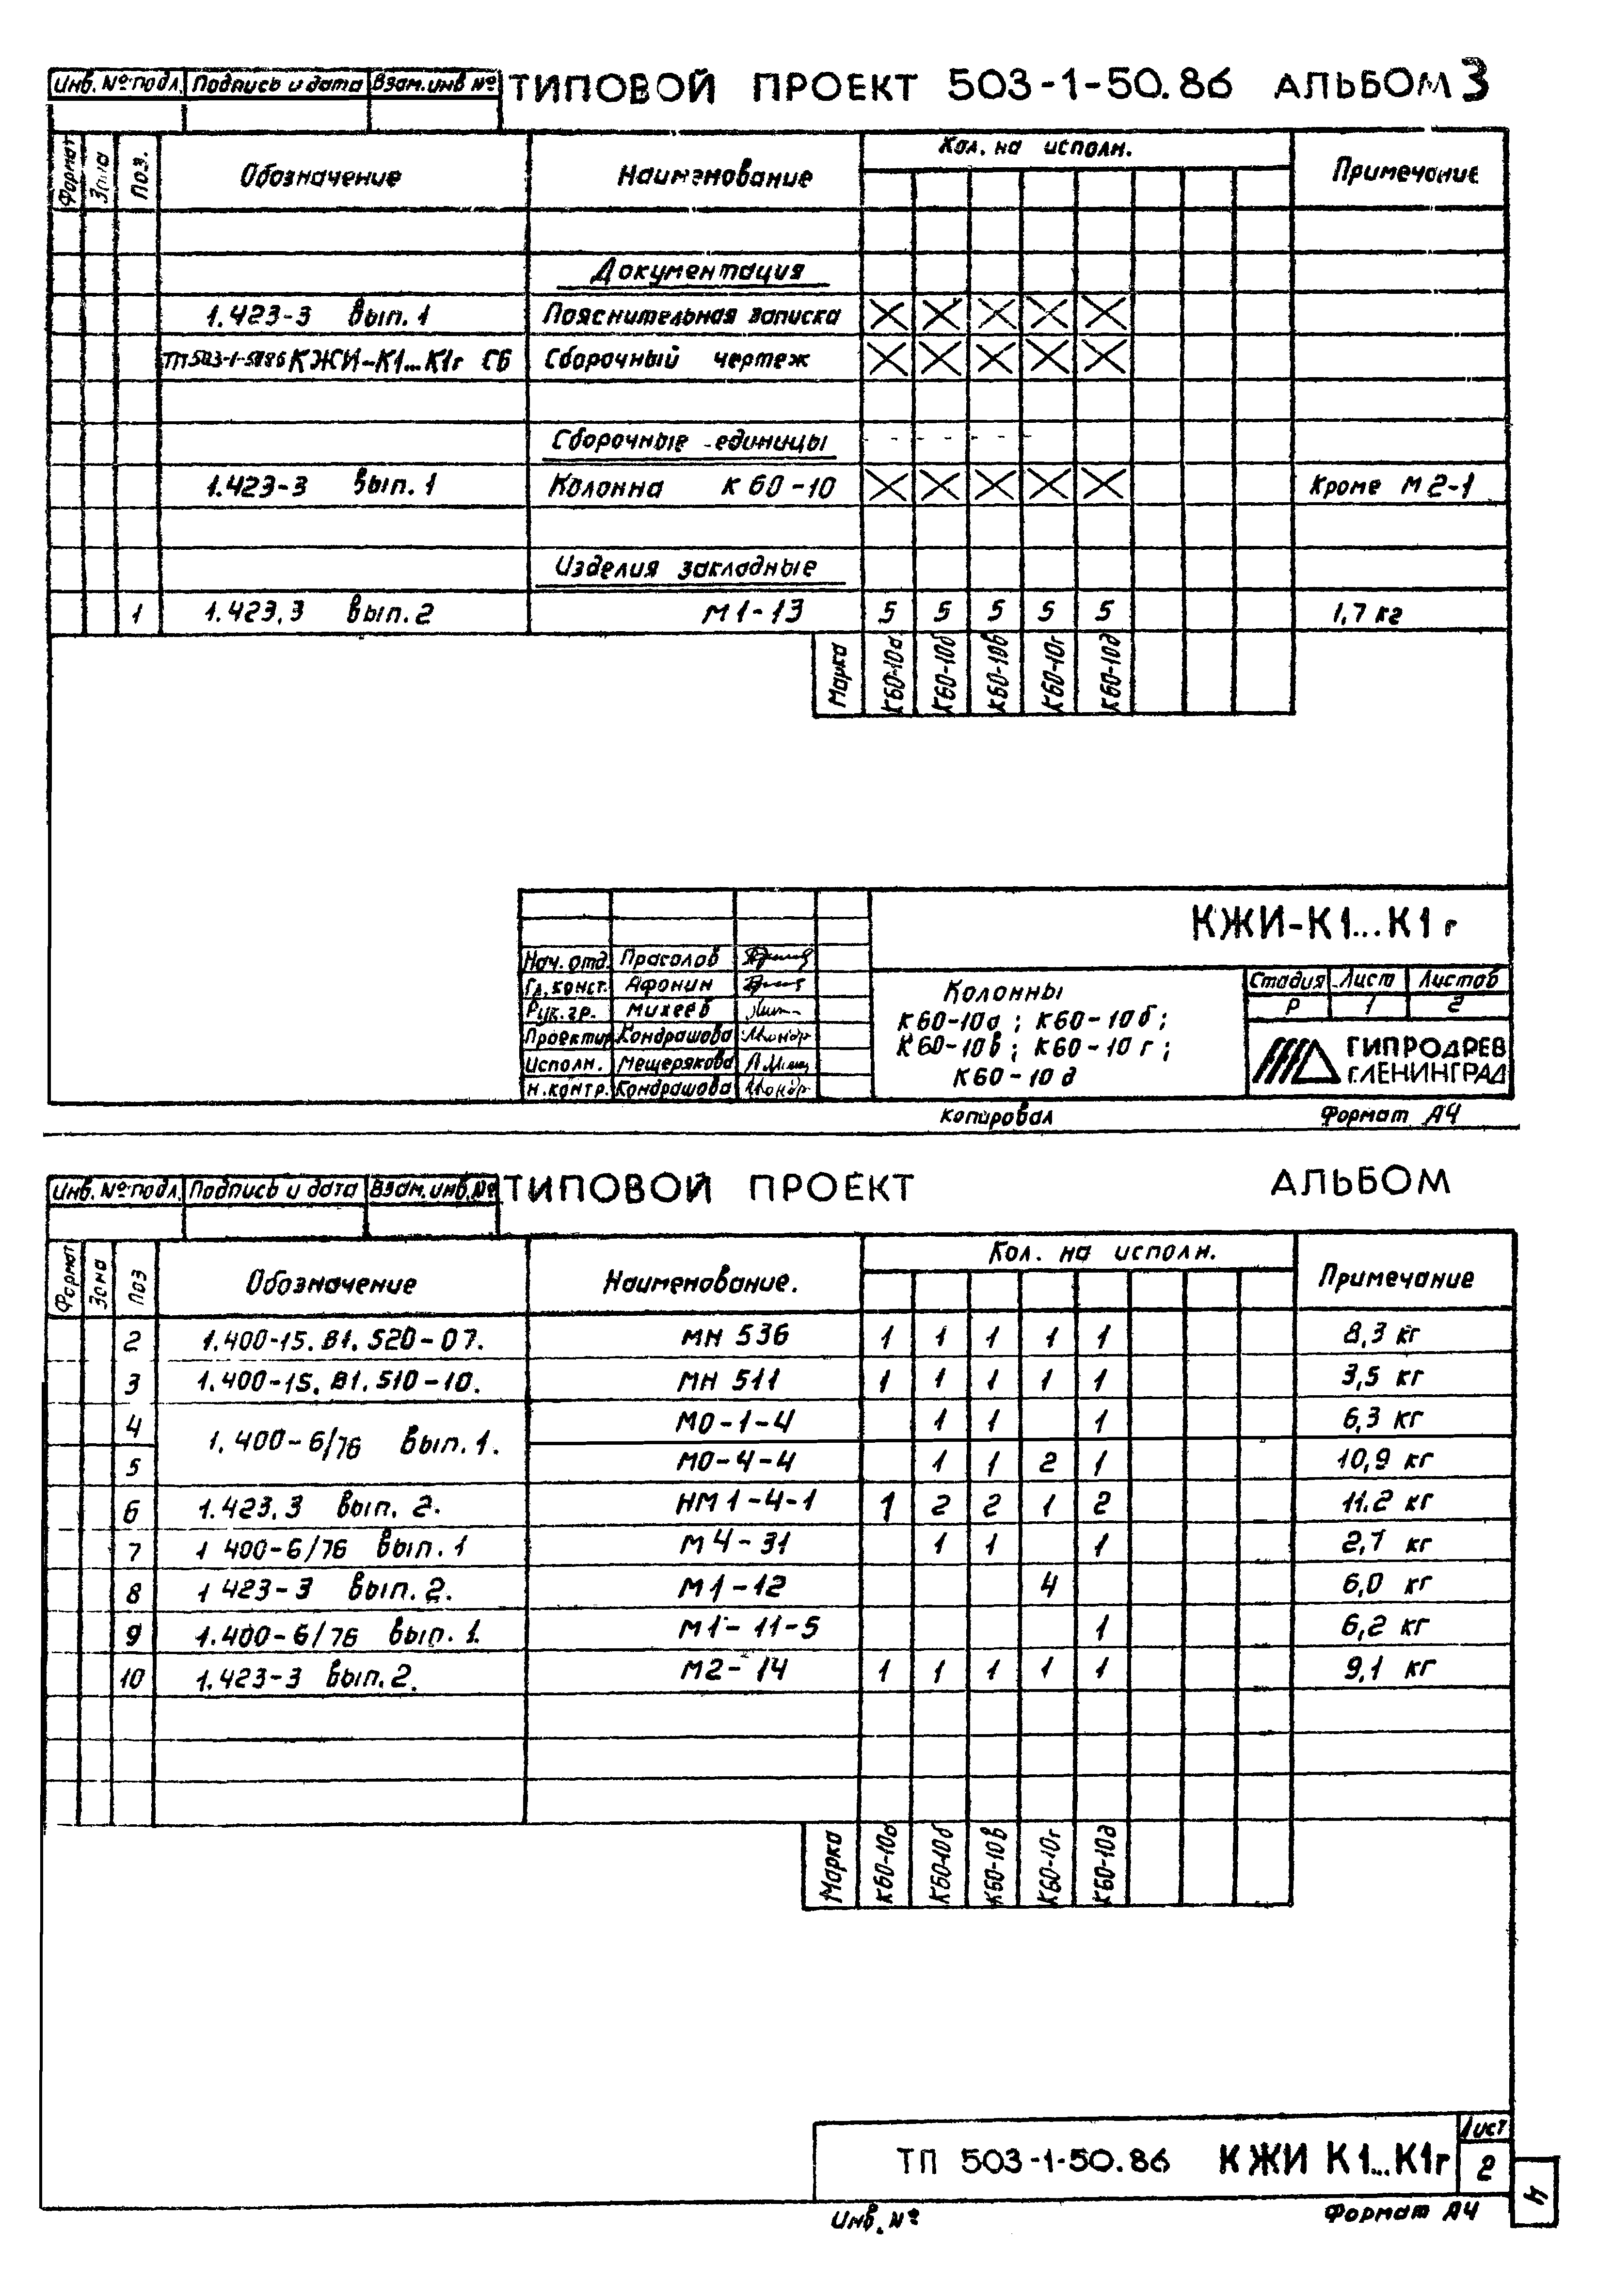 Инв. № подл. Подпись и дата Взам. инв № ТИПОВОЙ ПРОЕКТ 503-1-50.86 АЛЬБОМ 3
Формат Зона Поз. Обозначение Наименование Кол. на исполн. Примечание
Документация
1.423-3 вып. 1 Пояснительная записка
ТП503-1-5086 КЖИ-К1...К1г СБ Сборочный чертеж
Сборочные единицы
1.423-3 вып. 1 Колонна К 60-10 Кроме М 2-1
Изделия закладные
1 1.423.3 вып. 2 М 1-13 5 5 5 5 5 1,7 кг
Марка К60-10а К60-10б К60-10в К60-10г К60-10д
КЖИ-К1...К1г
Нач. отд. Прасолов
Гл. конст. Афонин
Рук. гр. Михеев
Проектир. Кондрашова
Исполн. Мещерякова
Н. контр. Кондрашова
Колонны
К60-10а ; К60-10б ;
К60-10в ; К60-10г ;
К60-10д
Стадия Лист Листов
Р 1 2
ГИПРОДРЕВ
Г.ЛЕНИНГРАД
Копировал Формат А4
Инв. № подл. Подпись и дата Взам. инв. № ТИПОВОЙ ПРОЕКТ АЛЬБОМ
Формат Зона Поз Обозначение Наименование. Кол. на исполн. Примечание
2 1.400-15. В1. 520-07. МН 536 1 1 1 1 1 8,3 кг
3 1.400-15. В1. 510-10. МН 511 1 1 1 1 1 3,5 кг
4 1.400-6/76 вып. 1. М0-1-4 1 1 1 6,3 кг
5 М0-4-4 1 1 2 1 10,9 кг
6 1.423.3 вып. 2. НМ1-4-1 1 2 2 1 2 11.2 кг
7 1 400-6/76 вып. 1 М 4-31 1 1 1 2,7 кг
8 1 423-3 вып. 2. М1-12 4 6,0 кг
9 1.400-6/76 вып. 1. М1-11-5 1 6,2 кг
10 1.423-3 вып. 2. М2-14 1 1 1 1 1 9,1 кг
Марка К60-10а К60-10б К60-10в К60-10г К60-10д
ТП 503-1-50.86 КЖИ К1...К1г Лист 2
4
Инв. № Формат А4